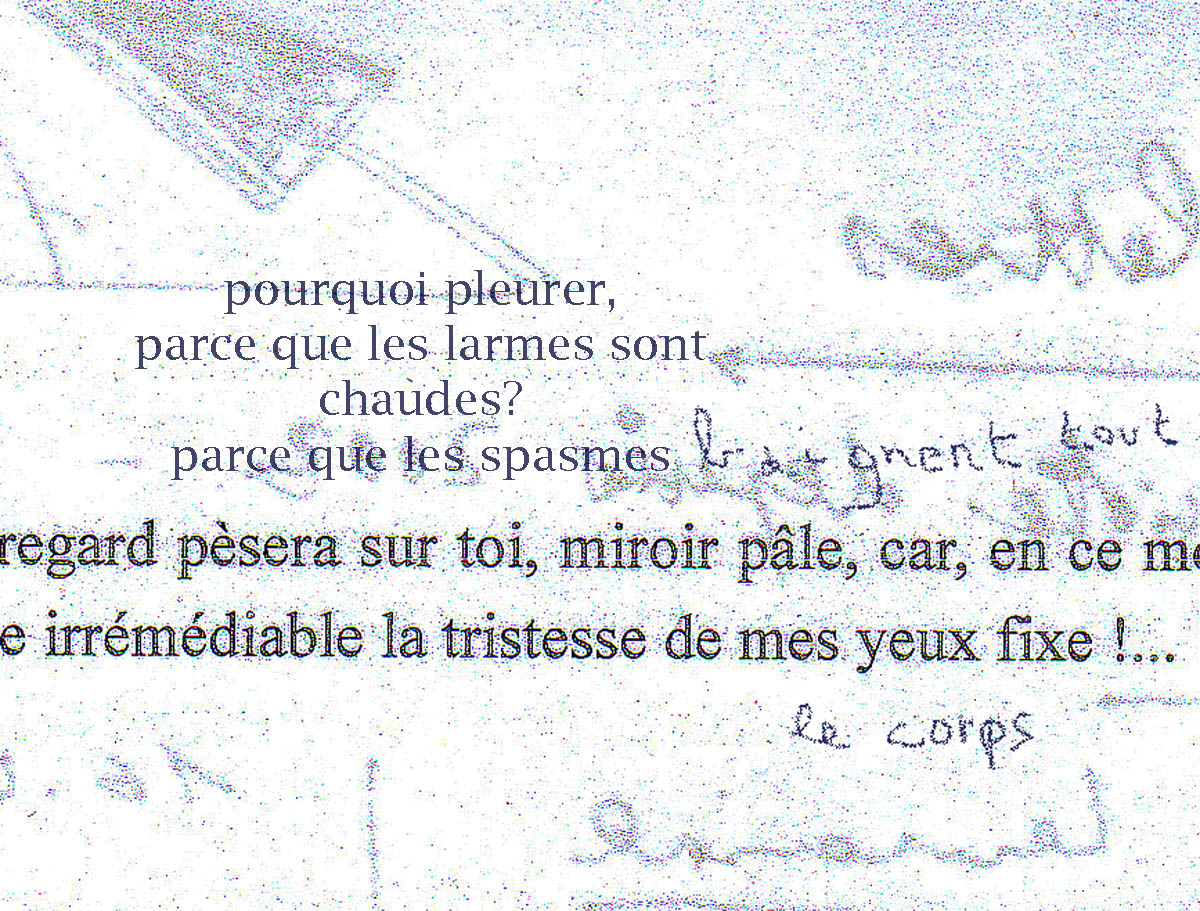 pourquoi pleurer,
parce que les larmes sont
chaudes?
parce que les spasmes baignent tout
regard pèsera sur toi, miroir pâle, car, en ce mo
e irrémédiable la tristesse de mes yeux fixe !...
le corps